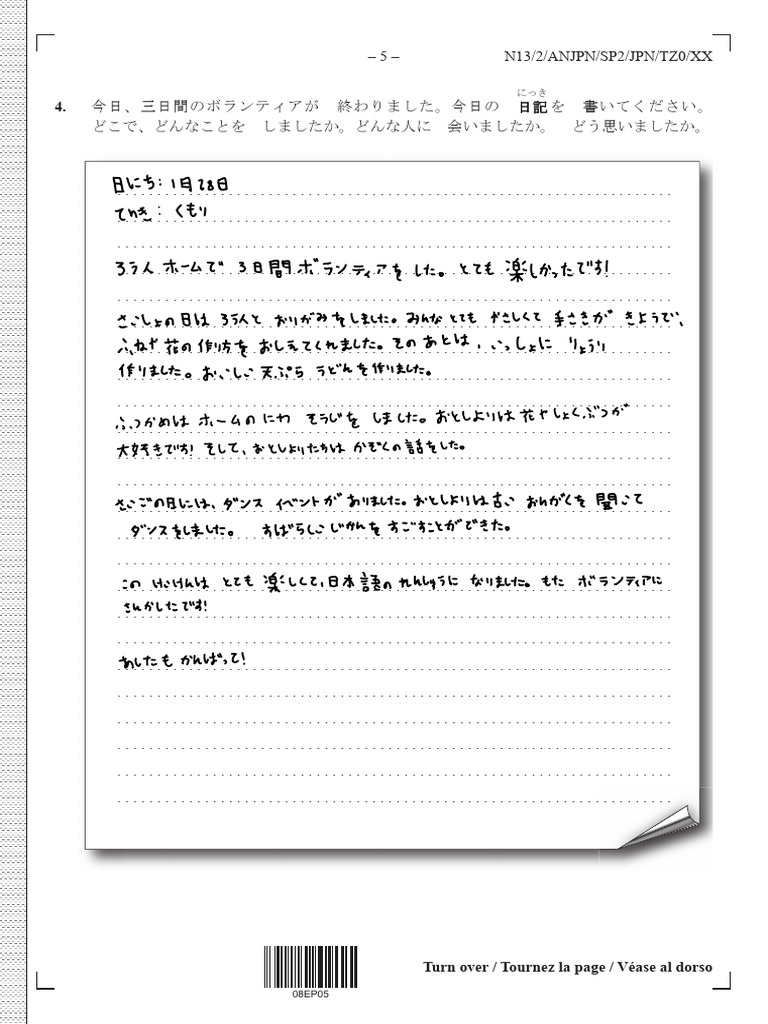 – 5 –
N13/2/ANJPN/SP2/JPN/TZ0/XX
にっき
4. 今日、三日間のボランティアが 終わりました。今日の 日記を 書いてください。
どこで、どんなことを しましたか。どんな人に 会いましたか。 どう思いましたか。
日にち：1月28日
てんき：くもり
ろう人 ホームで 3日間ボランティアをした。とても 楽しかったです!
さいしょの日は ろう人と おりがみをしました。みんな とても やさしくて 手さきが きようで、
ふねや 花の作り方を おしえてくれました。そのあとは、いっしょに りょうり
作りました。おいしい 天ぷら うどんを作りました。
ふつかめは ホームのにわ そうじを しました。おとしよりは 花や しょくぶつが
大好きです! そして、おとしよりたちは かぞくの話をした。
さいごの日には、ダンス イベントが ありました。おとしよりは古い おんがくを 聞いて
ダンスをしました。 すばらしい じかんを すごすことができた。
この けいけんは とても 楽しくて、日本語の れんしゅうに なりました。もた ボランティアに
さんかしたです!
あしたも がんばって!
Turn over / Tournez la page / Véase al dorso
08EP05